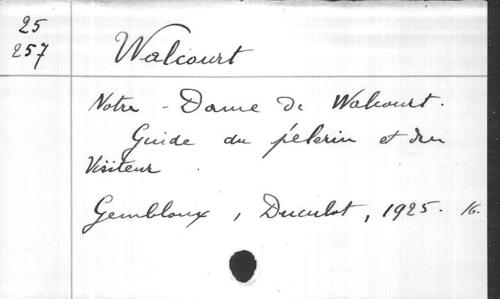 25
257
Walcourt
Notre-Dame de Walcourt.
Guide du pélerin et du
Visiteur.
Gembloux, Duculot, 1925. 16.